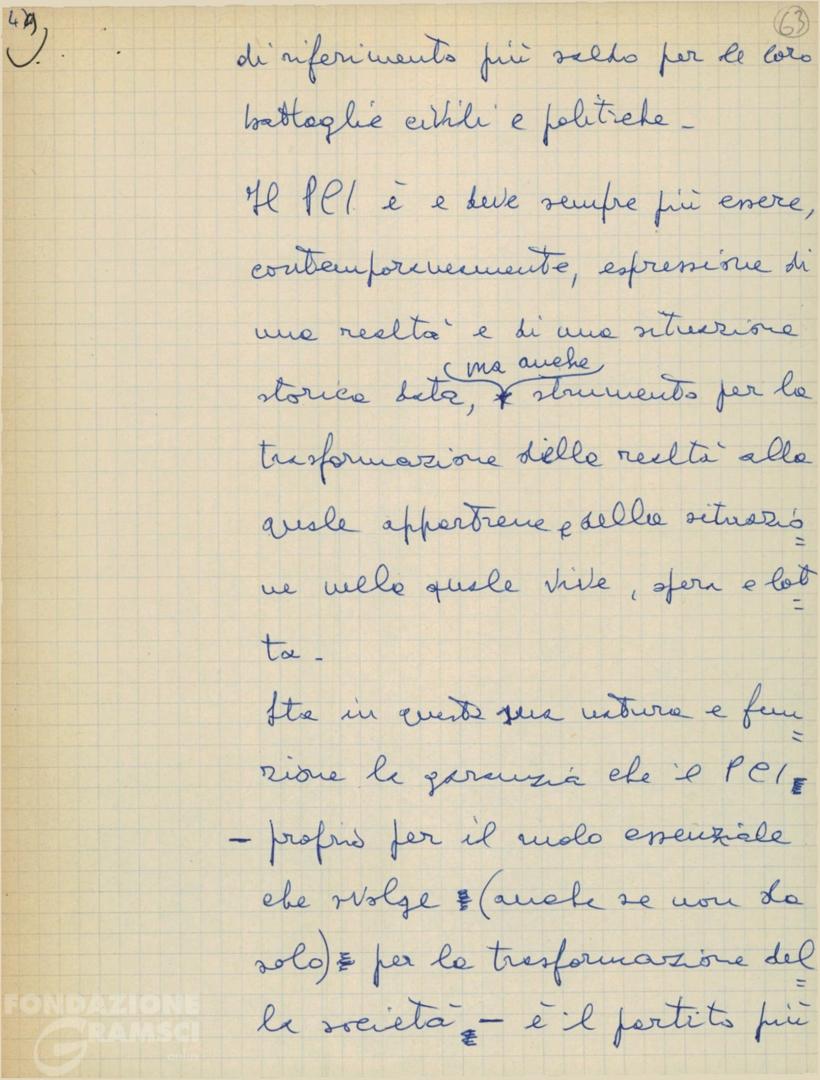 49
63
di riferimento più saldo per le loro
battaglie civili e politiche -
Il PCI è e deve sempre più essere,
contemporaneamente, espressione di
una realtà e di una situazione
ma anche
storica data, strumento per la
trasformazione della realtà alla
quale appartiene e della situazio
ne nella quale vive, opera e lot
ta -
Sta in questa sua natura e fun
zione la garanzia che il PCI
- proprio per il ruolo essenziale
che svolge (anche se non da
solo) per la trasformazione del
la società - è il partito più
FONDAZIONE
GRAMSCI